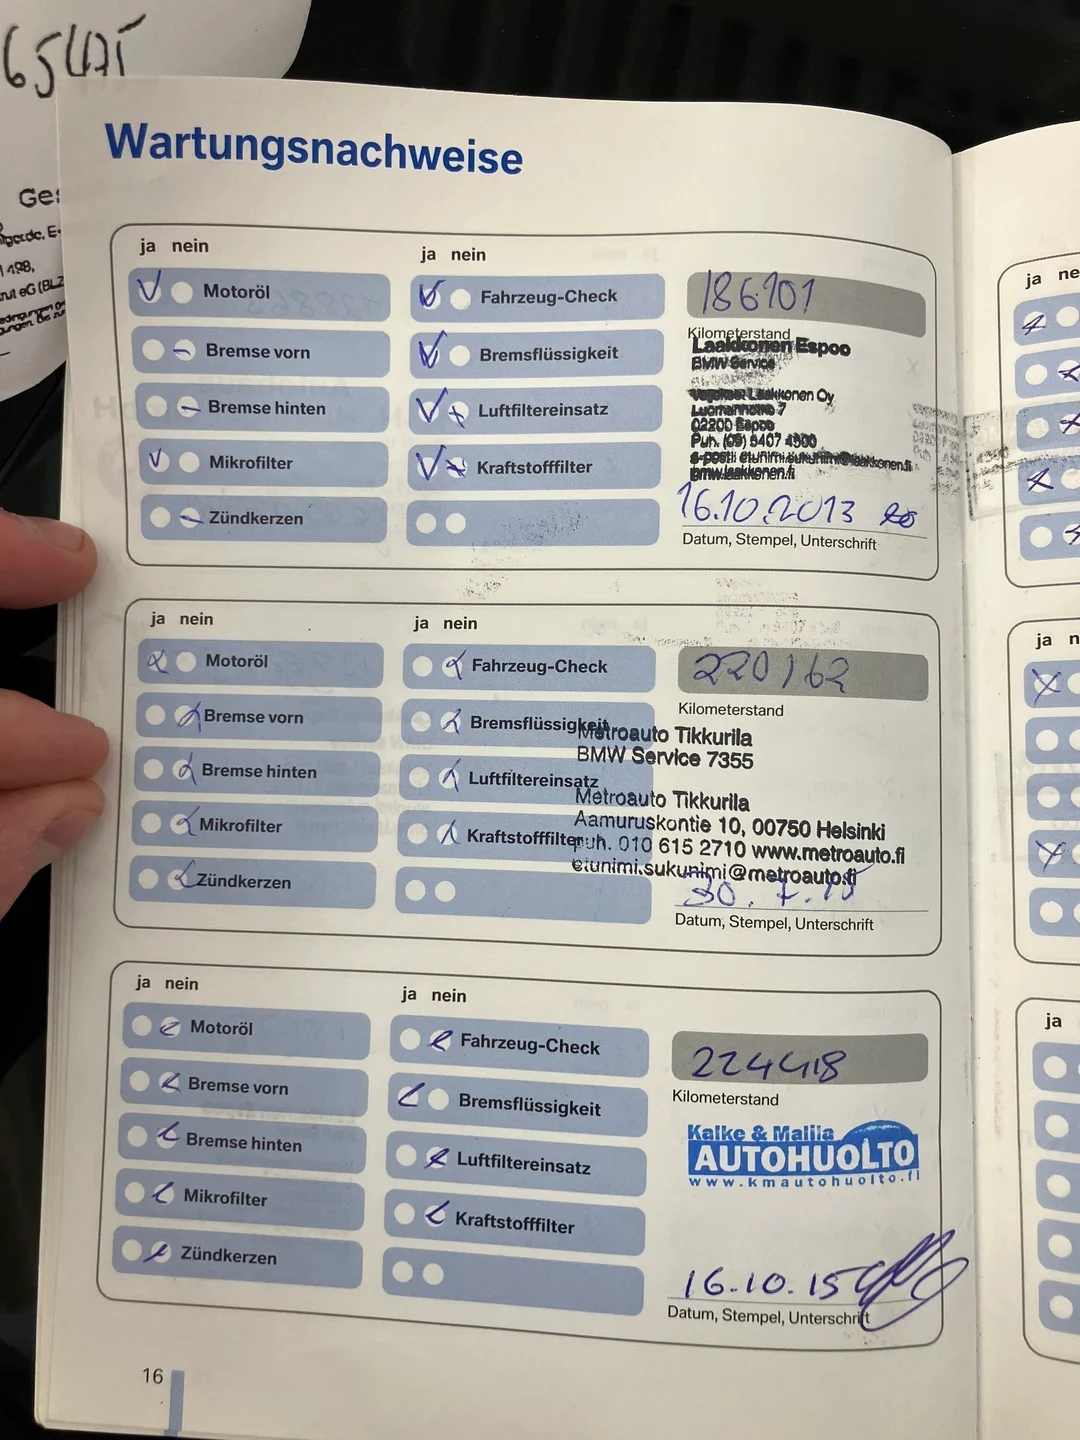 Wartungsnachweise
ja nein
Motoröl
Bremse vorn
Bremse hinten
Mikrofilter
Zündkerzen
ja nein
Fahrzeug-Check
Bremsflüssigkeit
Luftfiltereinsatz
Kraftstofffilter
186101
Kilometerstand
Laakkonen Espoo
BMW Service
Laakkonen Oy
Luomannotko 7
02200 Espoo
Puh. (09) 5407 4300
bmw.laakkonen.fi
16.10.2013
Datum, Stempel, Unterschrift
ja nein
Motoröl
Bremse vorn
Bremse hinten
Mikrofilter
Zündkerzen
ja nein
Fahrzeug-Check
Bremsflüssigkeit
Luftfiltereinsatz
Kraftstofffilter
220162
Kilometerstand
Metroauto Tikkurila
BMW Service 7355
Metroauto Tikkurila
Aamuruskontie 10, 00750 Helsinki
puh. 010 615 2710 www.metroauto.fi
etunimi.sukunimi@metroauto.fi
30.7.15
Datum, Stempel, Unterschrift
ja nein
Motoröl
Bremse vorn
Bremse hinten
Mikrofilter
Zündkerzen
ja nein
Fahrzeug-Check
Bremsflüssigkeit
Luftfiltereinsatz
Kraftstofffilter
224418
Kilometerstand
Kalke & Malila
AUTOHUOLTO
www.kmautohuolto.fi
16.10.15
Datum, Stempel, Unterschrift
16
ja ne
ja n
ja